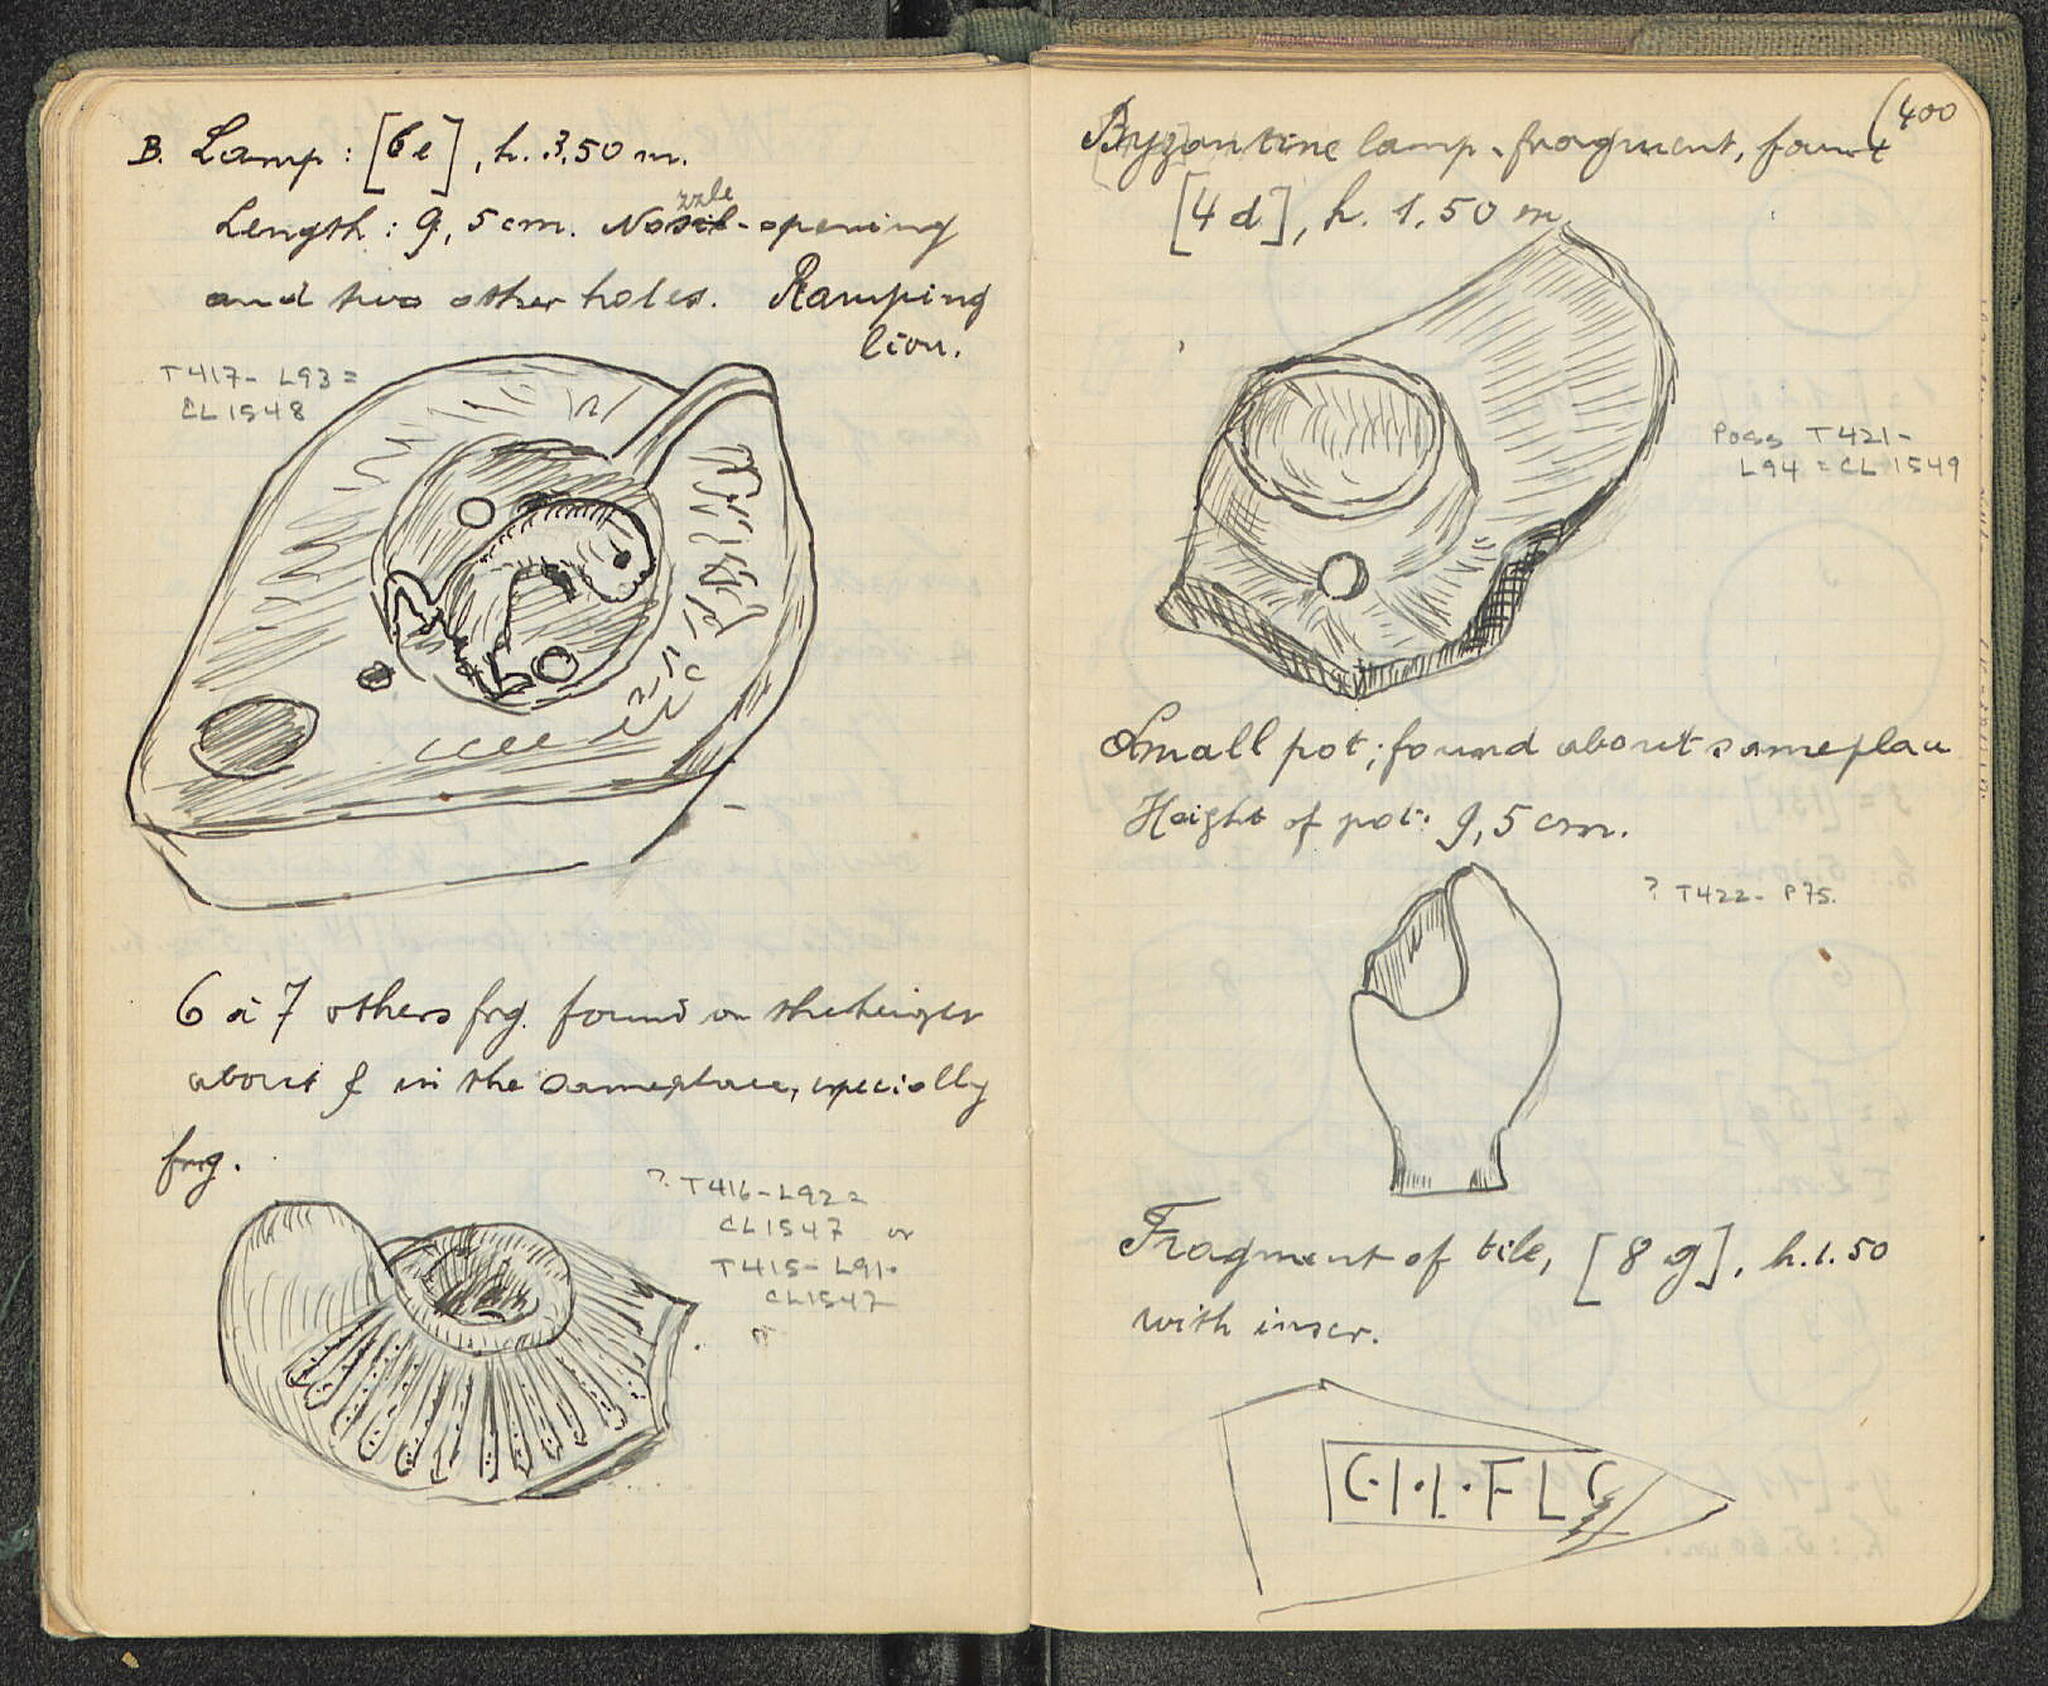 B. Lamp : [6e], h. 3,50 m.
Length : 9,5 cm. Nozzle-opening
and two other holes. Ramping
lion.
T417- L93 =
CL 1548
6 à 7 others frg. found on the
about & in the same place, especially
frg.
? T416-L92 =
CL 1547 or
T415- L91.
CL1547
(400
Byzantine lamp-fragment, found
[4 d], h. 1,50 m.
Poss T421-
L94 = CL 1549
Small pot; found about same place
Height of pot: 9,5 cm.
? T422- P75.
Fragment of tile, [8 g], h. 1.50
with inscr.
C·I·I·FLC